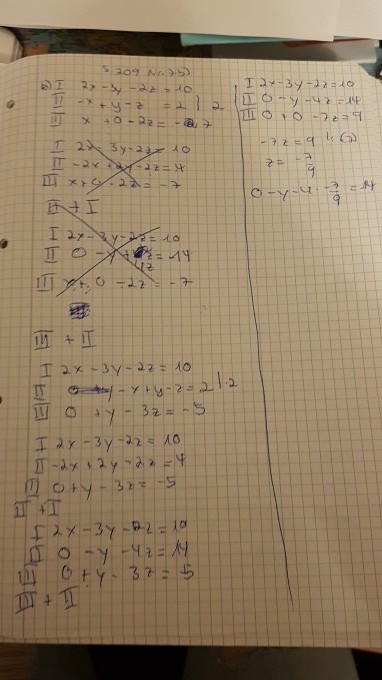 S. 209 Nr. 75)
b) I 2x-3y-2z=10
II -x+y-z=2 | 2
III x+0-2z=-7
I 2x-3y-2z=10
II -2x+2y-2z=4
III x+0-2z=-7
II + I
I 2x-3y-2z=10
II 0-y-4z=14
III x+0-2z=-7
III + II
I 2x-3y-2z=10
II -x+y-z=2 | ·2
III 0+y-3z=-5
I 2x-3y-2z=10
II -2x+2y-2z=4
III 0+y-3z=-5
II + I
I 2x-3y-2z=10
II 0-y-4z=14
III 0+y-3z=5
III + II
I 2x-3y-2z=10
II 0-y-4z=14
III 0+0-7z=9
-7z=9 |:(7)
z=-7/9
0-y-4·-7/9=14